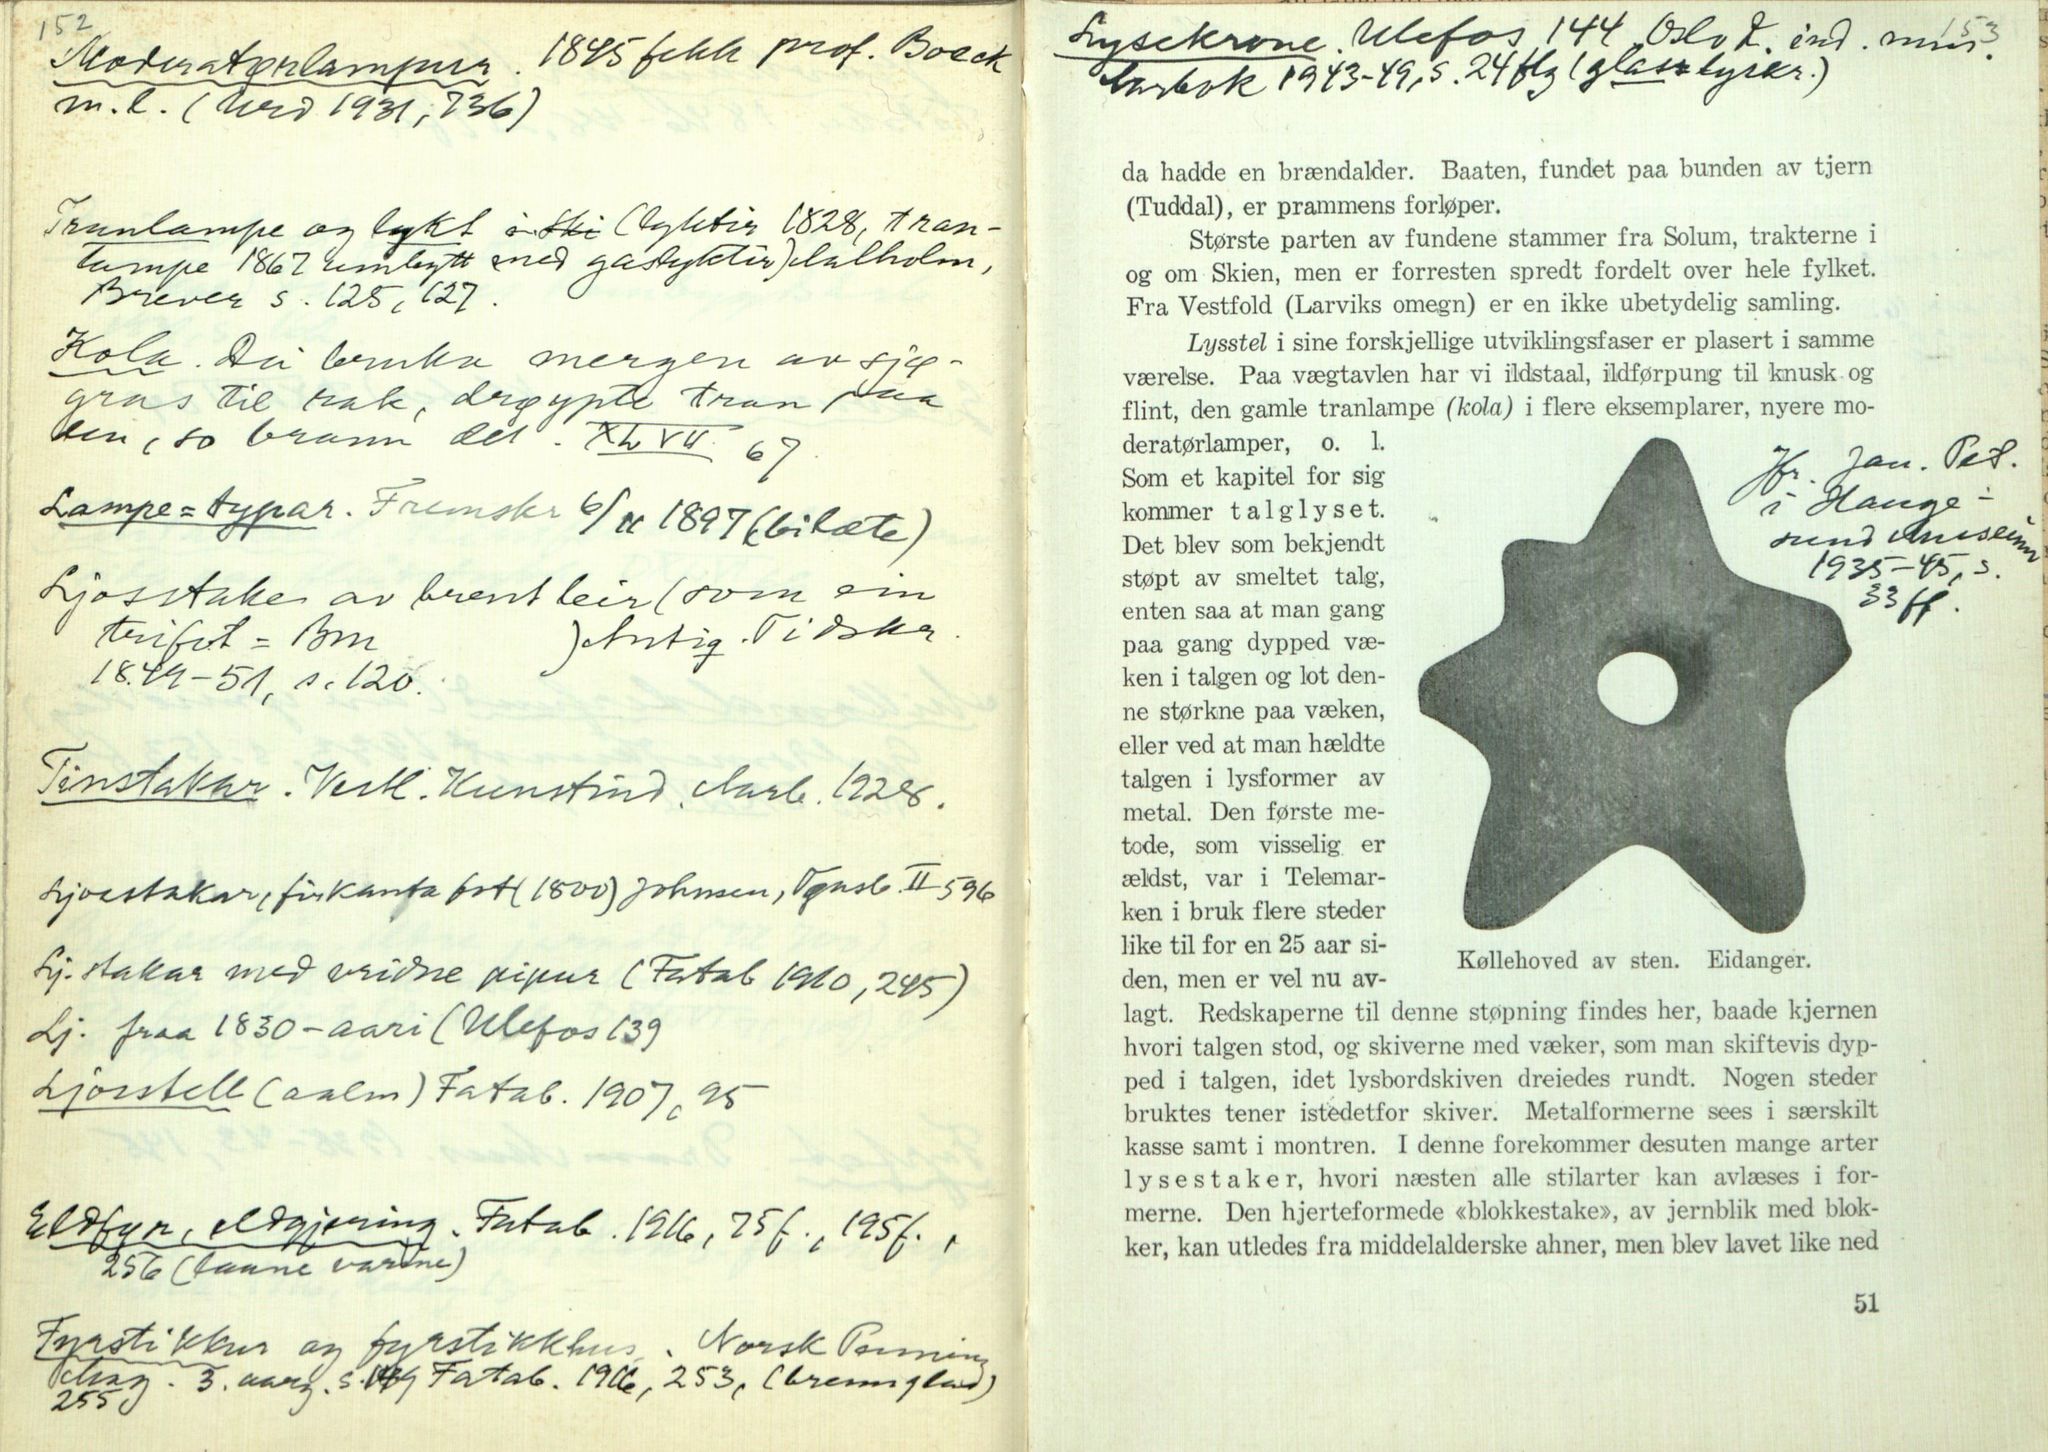 152
Moderatørlampur. 1845 fekk prof. Boeck
m.l. (Urd 1931, 736)
Tranlampe og lykt i Ski (lyktir 1828, tran-
lampe 1867 umbytt med gaslyktir) Malholm,
Brever s. 125, 127.
Kola. Dei bruka mergen av sjø-
gras til rak, drøypte tran paa
den, so brann det. XLVII 67.
Lampe=typar. Fremskr 6/11 1897 (bilæte)
Ljosstake av brent leir (som ein
trifot = Bm ) Antiq. Tidskr.
1849-51, s. 120.
Tinstakar. Vestl. Kunstind. Aarb. 1928.
Ljosstakar, firkanta fot (1800) Johnsen, Tønsb. II 596
Lj. stakar med vridne pipur (Fatab 1910, 245)
Lj. fraa 1830-aari (Ulefos 139
Ljosstell (aalm) Fatab. 1907, 95
Eldfyr, eldgjering. Fatab. 1916, 75f., 195f.,
256 (taane varme)
Fyrstikkur og fyrstikkhus. Norsk Penning
Mag. 3. aarg. s. Fatab. 1916, 253, (brennglas)
255
153
Lysekrone. Ulefos 144. Oslo k. ind. mus.
Aarbok 1943-49, s. 24 flg (glaslyskr.)
da hadde en brændalder. Baaten, fundet paa bunden av tjern
(Tuddal), er prammens forløper.
Største parten av fundene stammer fra Solum, trakterne i
og om Skien, men er forresten spredt fordelt over hele fylket.
Fra Vestfold (Larviks omegn) er en ikke ubetydelig samling.
Lysstel i sine forskjellige utviklingsfaser er plasert i samme
værelse. Paa vægtavlen har vi ildstaal, ildførpung til knusk og
flint, den gamle tranlampe (kola) i flere eksemplarer, nyere mo-
deratørlamper, o. l.
Som et kapitel for sig
kommer talglyset.
Det blev som bekjendt
støpt av smeltet talg,
enten saa at man gang
paa gang dypped væ-
ken i talgen og lot den-
ne størkne paa væken,
eller ved at man hældte
talgen i lysformer av
metal. Den første me-
tode, som visselig er
ældst, var i Telemar-
ken i bruk flere steder
like til for en 25 aar si-
den, men er vel nu av-
lagt. Redskaperne til denne støpning findes her, baade kjernen
hvori talgen stod, og skiverne med væker, som man skiftevis dyp-
ped i talgen, idet lysbordskiven dreiedes rundt. Nogen steder
bruktes tener istedetfor skiver. Metalformerne sees i særskilt
kasse samt i montren. I denne forekommer desuten mange arter
lysestaker, hvori næsten alle stilarter kan avlæses i for-
merne. Den hjerteformede «blokkestake», av jernblik med blok-
ker, kan utledes fra middelalderske ahner, men blev lavet like ned
Jfr. Jan. Pet.
i Hauge-
sund Museum
1935-45, s.
33 ff.
Køllehoved av sten. Eidanger.
51